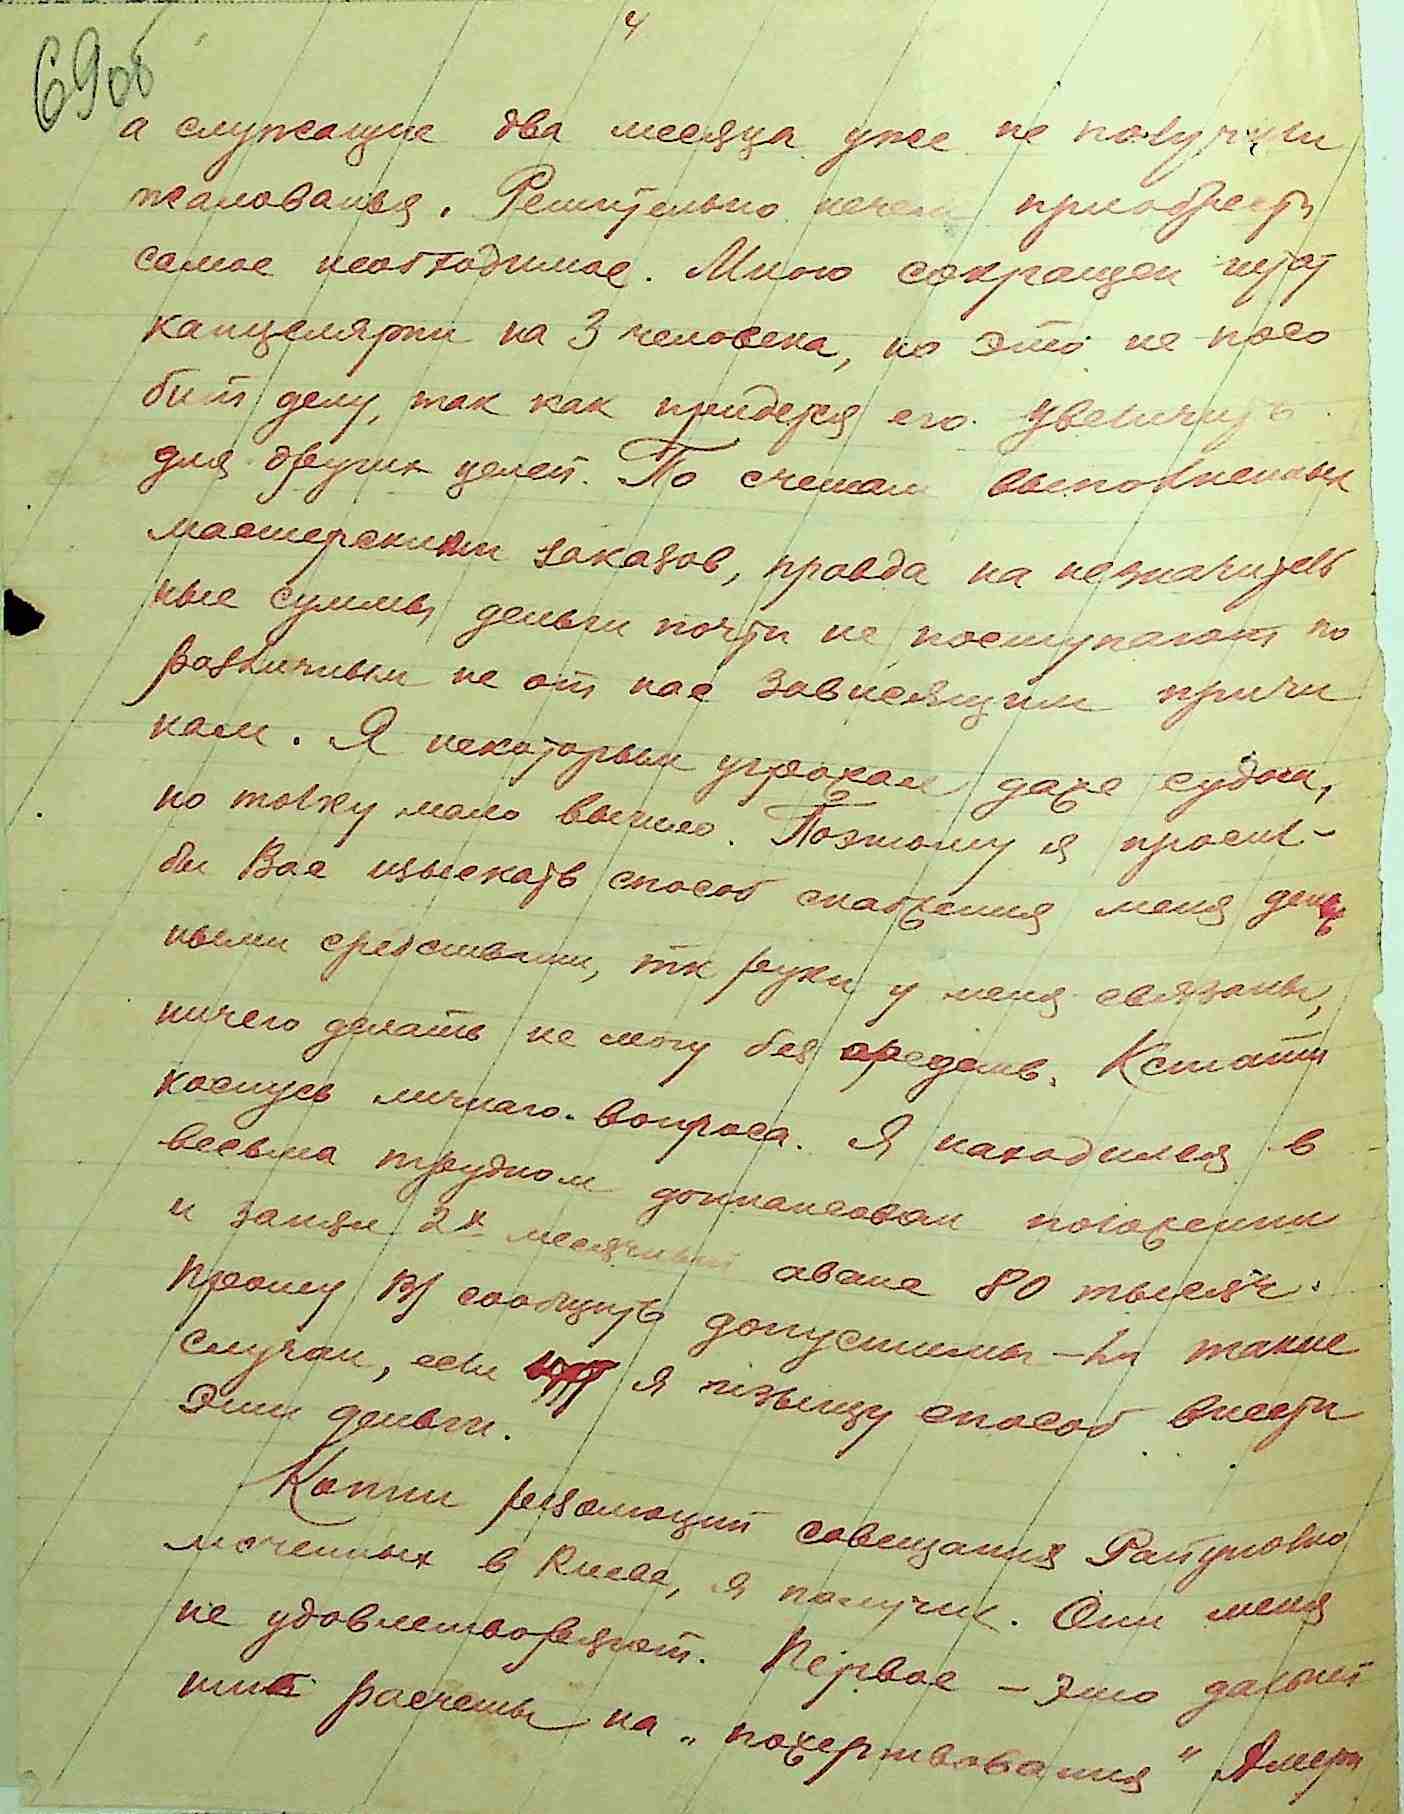 4
69об
а служащие два месяца уже не получили
жалованья. Решительно нечем приобрести
самое необходимое. Мною сокращен штат
канцелярии на 3 человека, но это не посо
бит делу, так как придется его увеличить
для других целей. По счетам выполненных
мастерскими заказов, правда на незначитель
ные суммы, деньги почти не поступают по
различным не от нас зависящим причи
нам. Я некоторым угрожал даже судом,
но толку мало вышло. Поэтому я просил-
бы Вас изыскать способ снабжения меня денеж
ными средствами, тк руки у меня связаны,
ничего делать не могу без средств. Кстати
коснусь личнаго вопроса. Я находился в
весьма трудном финансовом положении
и занял 2х месячный аванс 80 тысяч.
Прошу Вас сообщить допустимы-ли такие
случаи, если я изыщу способ внести
эти деньги.
Копии резолюций совещания Райуполно
моченных в Киеве, я получил. Они меня
не удовлетворяют. Первое - это дальней
шие расчеты на "пожертвования" Амери